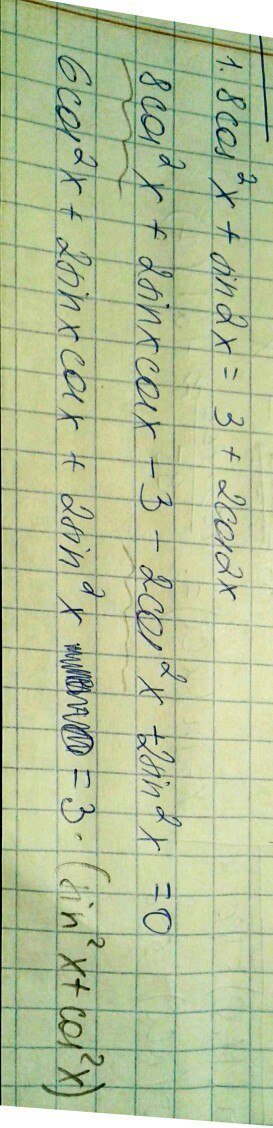 1. 8cos²x + sin2x = 3 + 2cos2x
8cos²x + 2sinxcosx - 3 - 2cos²x + 2sin²x = 0
6cos²x + 2sinxcosx + 2sin²x = 3 · (sin²x + cos²x)